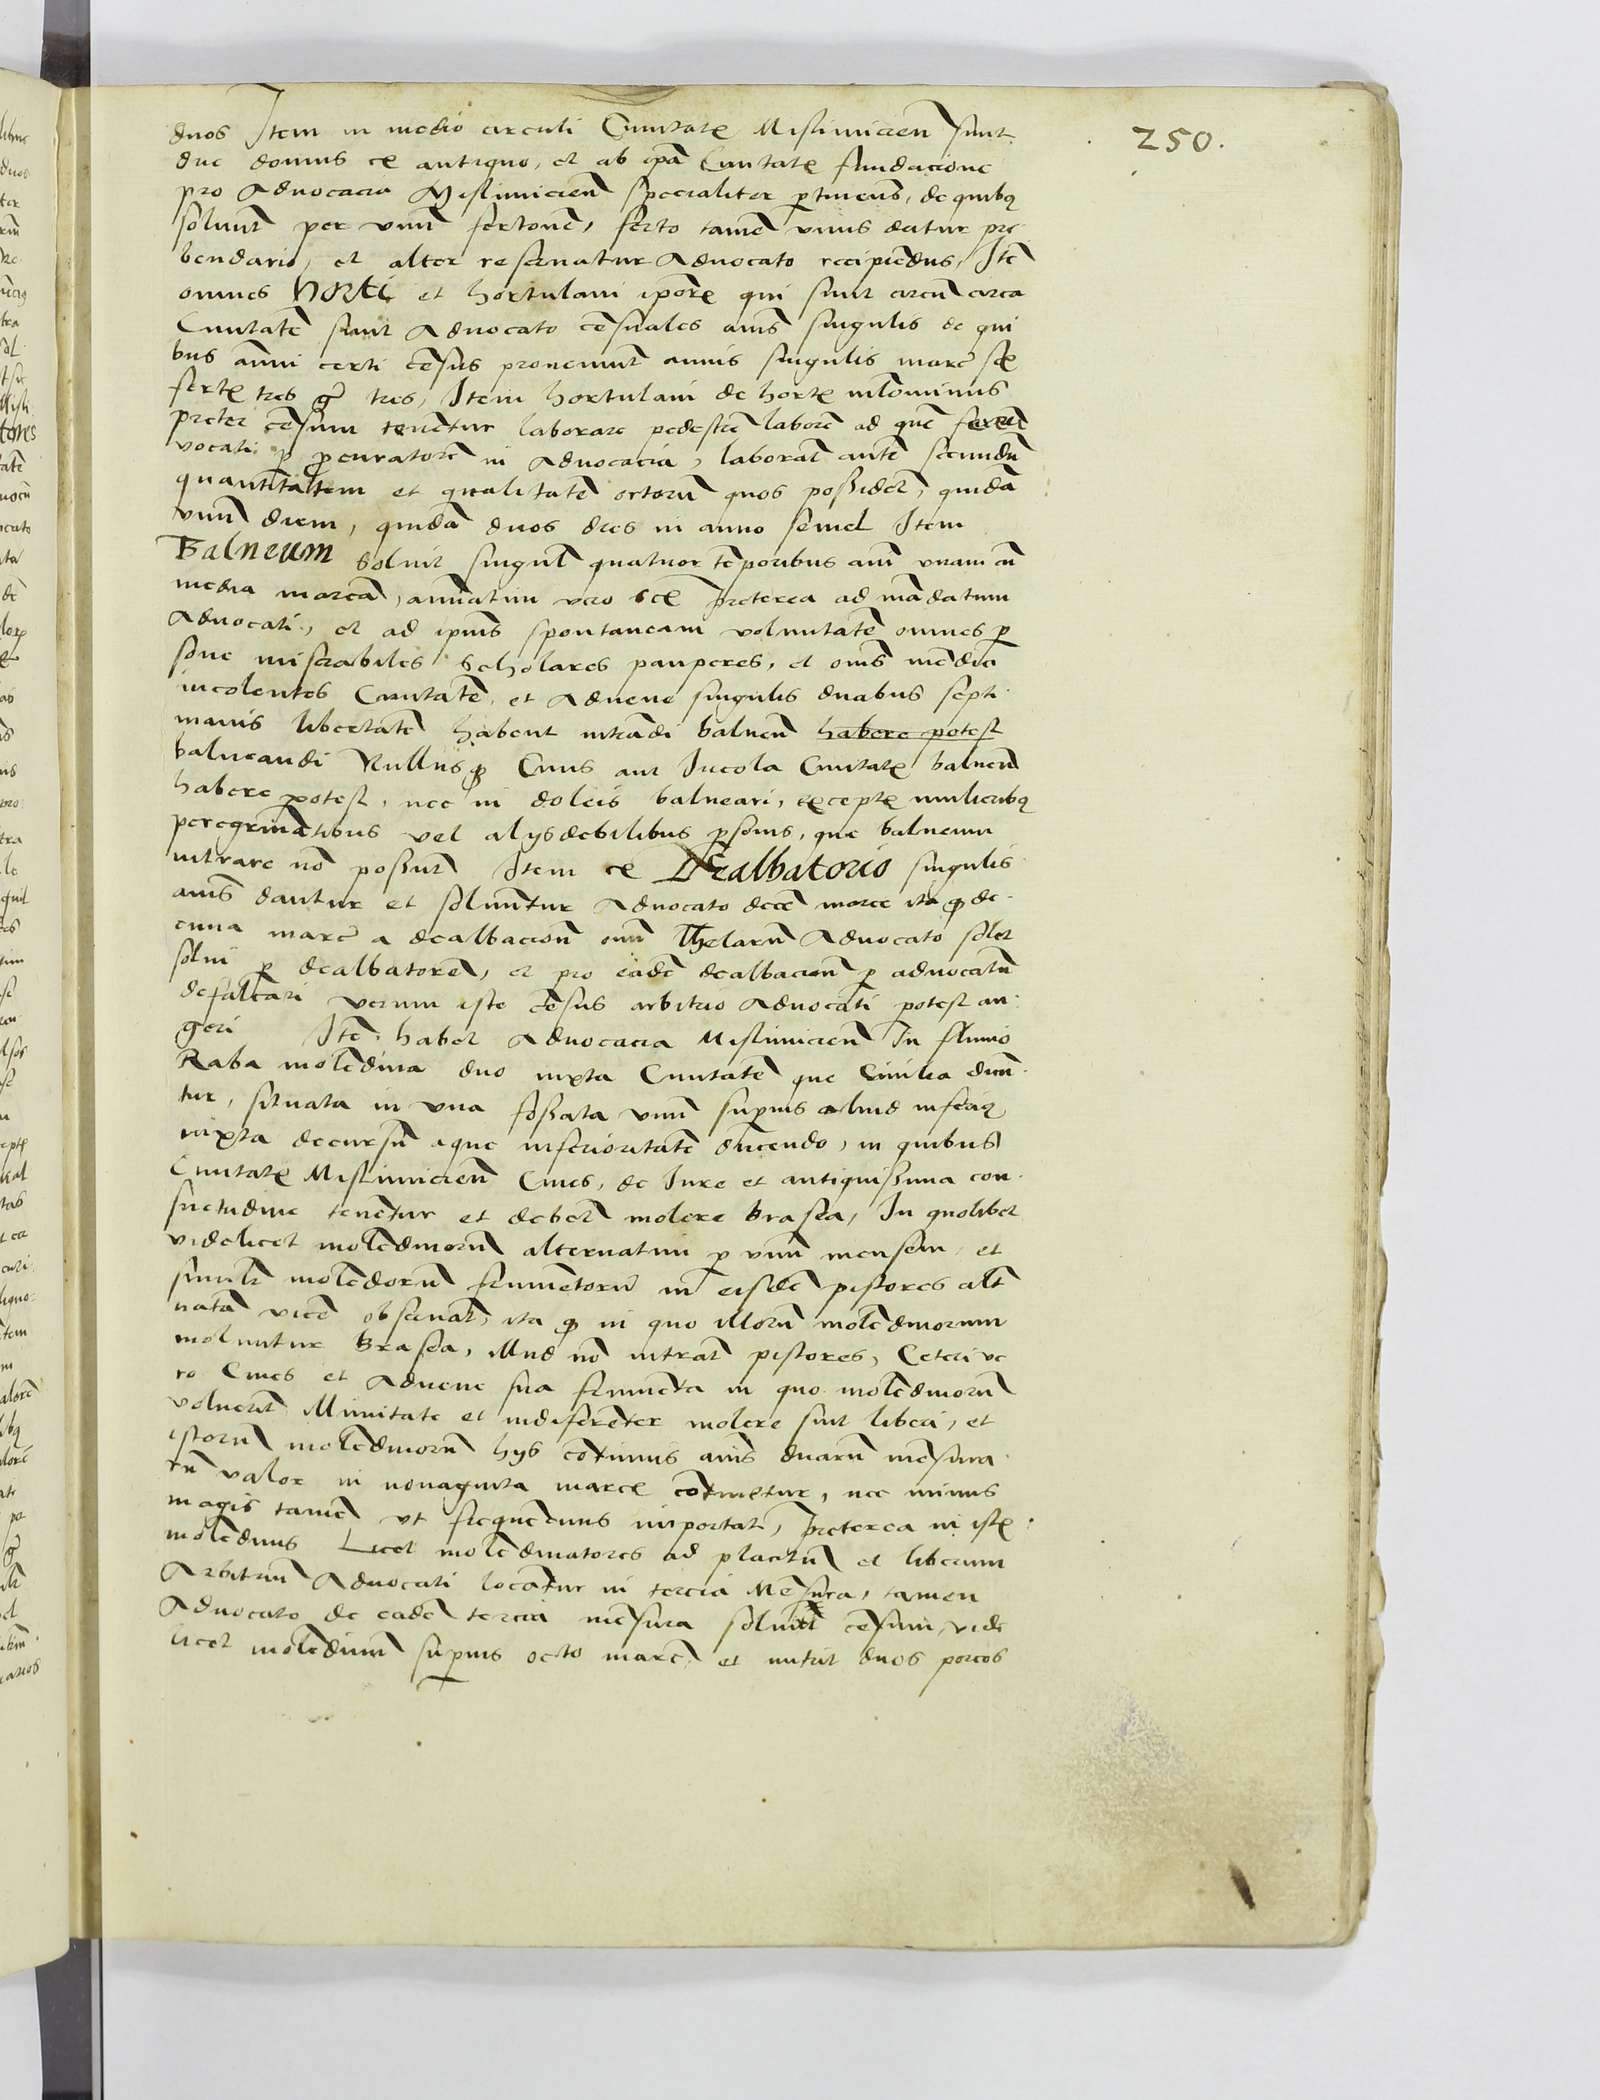 250.
duos Item in medio circuli Ciuitatꝭ Mislimicieñ sunt
due domus ex antiquo, et ab ipã Ciuitatꝭ fundacione
pro Aduocacia Mislimicieñ specialiter ꝑtineñt, de quibꝫ
soluunt per vnũ fertonẽ, ferto tamẽ vnus datur pre
bendario, et alter reseruatur Aduocato recipiẽdus, Itẽ
omnes Horti et hortulani iporꝝ qui sunt circũ circa
Ciuitatẽ sunt Aduocato cẽsuales añis singulis de qui
bus anni certi cẽsus proueniunt annis singulis marẽ sex
fertꝭ tres gr̃ tres, Item hortulani de hortꝭ in
preter cẽsum tenẽtur laborare pedestrẽ laborẽ ad quẽ
vocati ꝑ ꝓcuratorẽ in Aduocacia, laborãt autẽ secundũ
quantitatem et qualitatẽ ortorũ quos possidẽt, quidã
vnũ diem, quidã duos dies in anno semel Item
Balneum soluit singulꝭ quatuor tẽporibus añi vnam cũ
media marcã, annatim vero sex Preterea ad mãdatum
Aduocati, et ad ipius spontaneam voluntatẽ omnes ꝑ
sone miserabiles Scholares pauperes, et oñis mẽdici
incolentes Ciuitatẽ, et Aduene singulis duabus septi
manis libertatẽ habent intrãdi balneũ habere potest
balneandi Nullusqꝫ Ciuis aut Incola Ciuitatꝭ balneũ
habere potest, nec in doleis balneari, exceptꝭ mulieribꝫ
peregrinãtibus vel alijs debilibus ꝑsonis, que balneum
intrare nõ possunt Item ex Dealbatorio singulis
añis dantur et soluuntur Aduocato decẽ marce ita ꝙ de
cima marẽ a dealbacioñ oñiũ Thelarũ Aduocato solet
solui ꝑ dealbatorẽ, et pro eadẽ dealbacioñ ꝑ aduocatũ
defalcari verum iste cẽsus arbitrio Aduocati potest au
geri Itẽ habet Aduocacia Mislimicieñ In fluuio
Raba molẽdina duo iuxta Ciuitatẽ que Ciuilia dicũ
tur, situata in vna fossata vnũ supius aliud inferiꝫ
iuxta decursũ aque inferioritatẽ ducendo, in quibus
Ciuitatꝭ Mislimicieñ Ciues, de Iure et antiquissima con
suetudine tenẽtur et debẽt molere Brasea, In quolibet
videlicet molẽdinorũ alternatim ꝑ vnũ mensem, et
similꝭ molẽdorũ frumẽtorũ in eisdẽ pistores altẽ
natã vicẽ obseruãt, ita ꝙ in quo illorũ molẽdinorum
moluntur Brasea, illud nõ intrãt pistores, Ceteri ve
ro Ciues et Aduene sua frumẽta in quo molẽdinorũ
voluerit illimitate et indiferẽter molere sint liberi, et
istorũ molẽdinorũ hijs cõtinuis añis duarũ mẽsura
rũ valor in nonaginta marcꝭ cõtinetur, nec minus
magis tamẽ vt frequẽcius importãt, Preterea in istꝭ
molẽdinis Licet molẽdinatores ad placitũ et liberum
Arbitriũ Aduocati locãtur in tercia Mẽsura, tamen
Aduocato de eadẽ tercia mẽsura soluũt cẽsum, vide
licet molẽdinũ supius octo marẽ, et nutrit duos porcos